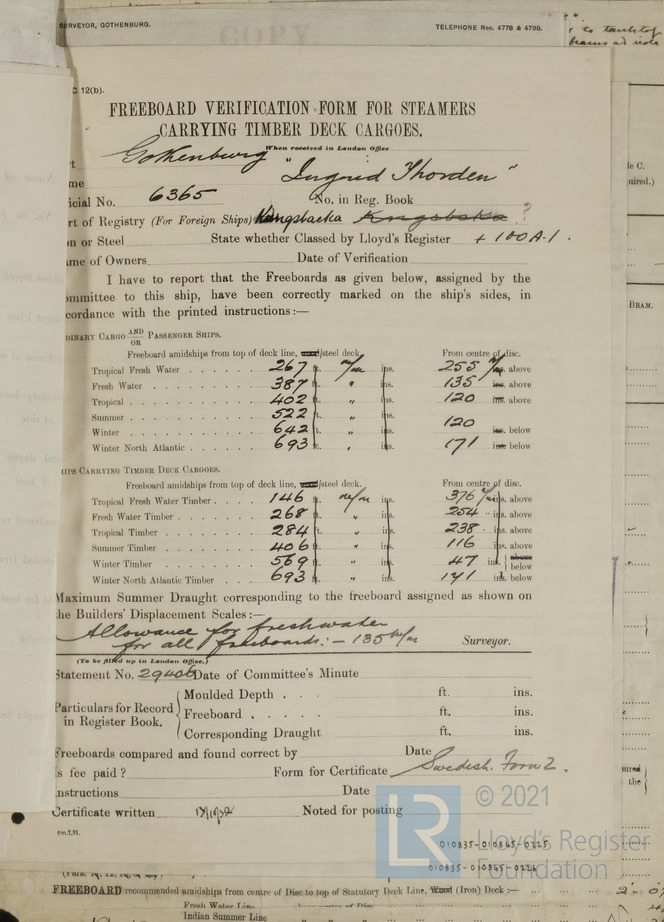 SURVEYOR, GOTHENBURG.
COPY
TELEPHONE Nos. 4778 & 4798.
C 12(b).
FREEBOARD VERIFICATION FORM FOR STEAMERS
CARRYING TIMBER DECK CARGOES.
When received in London Office
rt Gothenburg
me "Ingrid Thorden"
icial No. 6365 No. in Reg. Book
rt of Registry (For Foreign Ships) Kungsbacka ?
on or Steel State whether Classed by Lloyd's Register + 100 A.1.
me of Owners Date of Verification
I have to report that the Freeboards as given below, assigned by the
ommittee to this ship, have been correctly marked on the ship's sides, in
cordance with the printed instructions:—
DINARY CARGO AND OR PASSENGER SHIPS.
Freeboard amidships from top of deck line, wood/steel deck. From centre of disc.
Tropical Fresh Water 267 ft. m/m ins. 255 m/m ins. above
Fresh Water 387 ft. " ins. 135 ins. above
Tropical 402 ft. " ins. 120 ins. above
Summer 522 ft. " ins.
Winter 642 ft. " ins. 120 ins. below
Winter North Atlantic 693 ft. " ins. 171 ins. below
IPS CARRYING TIMBER DECK CARGOES.
Freeboard amidships from top of deck line, wood/steel deck. From centre of disc.
Tropical Fresh Water Timber 146 ft. m/m ins. 376 m/m ins. above
Fresh Water Timber 268 ft. " ins. 254 ins. above
Tropical Timber 284 ft. " ins. 238 ins. above
Summer Timber 406 ft. " ins. 116 ins. above
Winter Timber 569 ft. " ins. 47 ins. above below
Winter North Atlantic Timber 693 ft. " ins. 171 ins. below
Maximum Summer Draught corresponding to the freeboard assigned as shown on
the Builders' Displacement Scales:—
Allowance for freshwater
for all freeboards:- 135 m/m Surveyor.
(To be filled up in London Office.)
Statement No. 29406 Date of Committee's Minute
Particulars for Record in Register Book.
Moulded Depth ft. ins.
Freeboard ft. ins.
Corresponding Draught ft. ins.
Freeboards compared and found correct by Date
Is fee paid? Form for Certificate Swedish. Form 2.
Instructions Date
Certificate written Noted for posting
4m,7,31.
LR © 2021
Lloyd's Register
Foundation
010835-010845-0225
010835-010845-0226
FREEBOARD recommended amidships from centre of Disc to top of Statutory Deck Line, Wood (Iron) Deck :—
Fresh Water Line
Indian Summer Line
le C.
uired.)
BEAM.
the